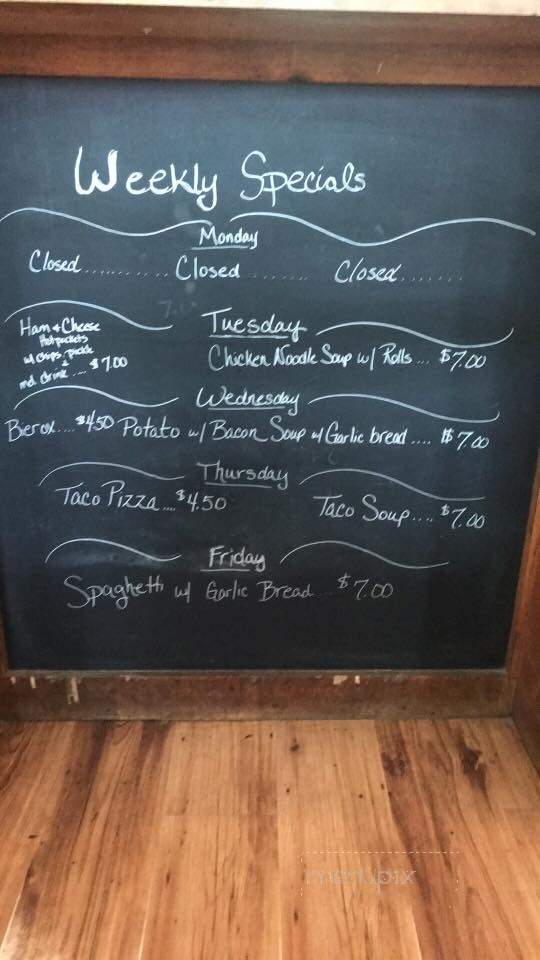 Weekly Specials
Monday
Closed.............Closed.........Closed.......
Tuesday
Ham & Cheese
Hot pockets
w/ chips, pickle
&
med. drink.... $7.00
Chicken Noodle Soup w/ Rolls... $7.00
Wednesday
Bierox....$4.50 Potato w/ Bacon Soup w/ Garlic bread.... $7.00
Thursday
Taco Pizza....$4.50 Taco Soup.... $7.00
Friday
Spaghetti w/ Garlic Bread...$7.00
menupix